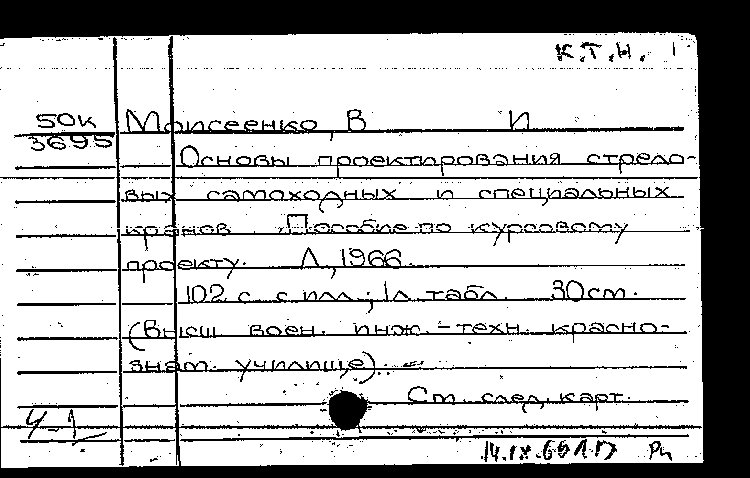 К.Т.Н.
50к
3695
Моисеенко, В И
Основы проектирования стрело-
вых самоходных и специальных
кранов. Пособие по курсовому
проекту. Л, 1966.
102 с. с илл.; 1л. табл. 30см.
(Высш воен. инж.-техн. красно-
знам. училище).
См. след. карт.
4-1
14.IX.66